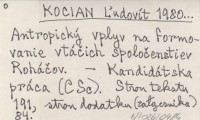 KOCIAN Ľudovít 1980...
Antropický vplyv na formo-
vanie vtáčích spoločenstiev
Roháčov. — Kandidátska
práca (CSc). Stron tekstu
191, stron dodatku (załącznika)
84.